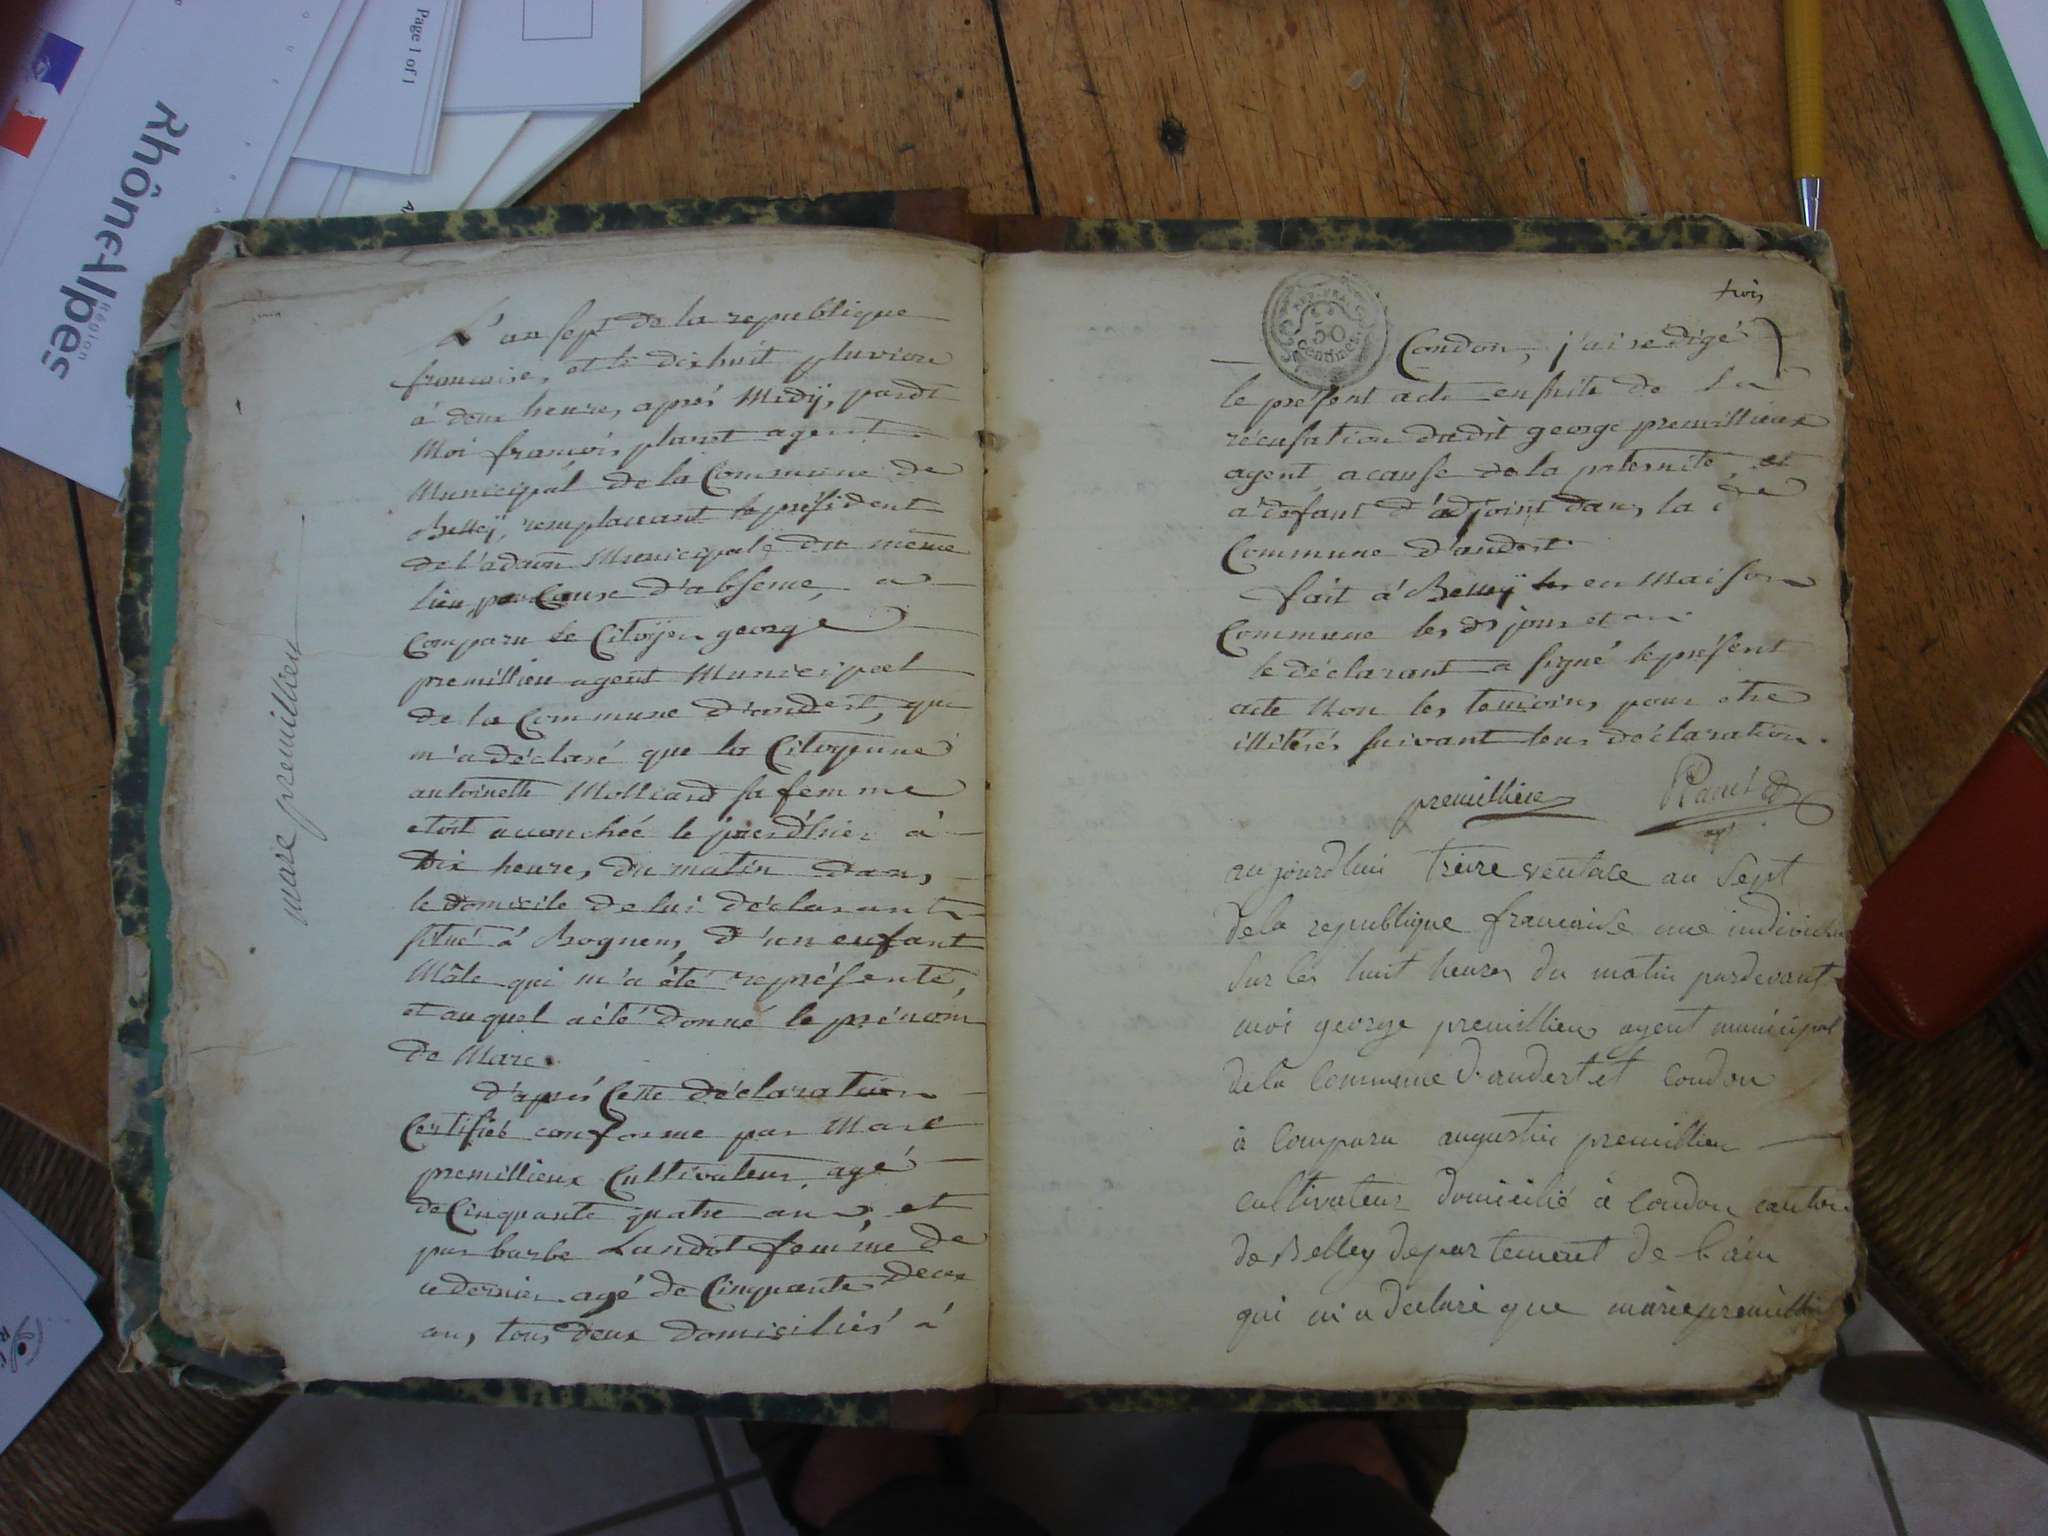 Page 1 of 1
Rhône-Alpes
Région
marc premillieu
L'an sept de la republique
francaise, et le dixhuit pluviose
à deux heures, après Midÿ, pardt
Moi francois plant agent
Municipal de la Commune de
Belleÿ, remplacant le président
de l'adaon Municipale du même
lieu, pour Cause d'absence, a
Comparu le Citoÿen george
premillieu agent Municipal
de la Commune d'andert, qui
m'a déclaré que la Citoyenne
antoinette Molliard sa femme
etoit accouchée le jour d'hier à
Dix heures, du matin dans
le domicile de lui déclarant
situé à Bognens, d'un enfant
Mâle qui m'a été représenté,
et auquel a été donné le prénom
de Marc.
d'après Cette déclaration
Certifiée conforme par Marc
premillieux Cultivateur, agé
de Cinquante quatre ans, et
par barbe Landot femme de
ce dernier agé de Cinquante deux
ans, tous deux domiciliés à
trois
REP. FRA.
50
Centimes
Condon, j'ai rédigé
le présent acte ensuite de la
récusation dudit george premillieux
agent a cause de la paternité, et
à défaut d'adjoint dans la de
Commune d'andert.
fait à Belleÿ en Maison
Commune les ds jour et an
le déclarant a signé le présent
acte Non les temoins, pour etre
illitérés suivant leur déclaration.
premillieu
aujourdhui treize ventose an Sept
de la republique francaise une indivisible
sur les huit heures du matin pardevant
moi george premillieu agent municipal
de la commune d'andert et condon
à comparu augustin premillieu
cultivateur domicilié à condon canton
de Belley departement de l'ain
qui m'a declaré que marie premillieu